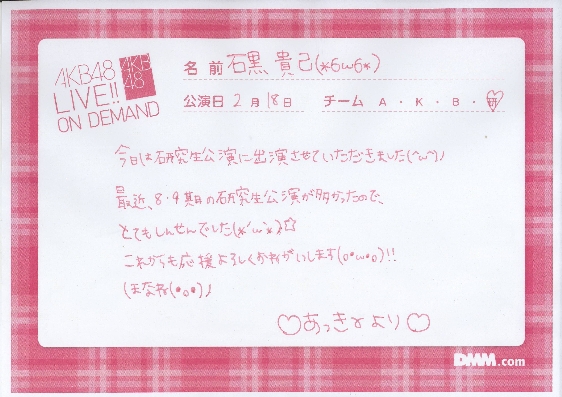 AKB48
LIVE!!
ON DEMAND
AKB
48
名前 石黒貴己(*6ω6*)
公演日 2月18日 チーム A・K・B・研
今日は研究生公演に出演させていただきました(^ω^)♪
最近、8・9期の研究生公演が多かったので、
とてもしんせんでした(*´ω`*)☆
これからも応援よろしくおねがいします(o•ω•o)!!
(まなね(•o•)♪
♡あっきーより♡
DMM.com